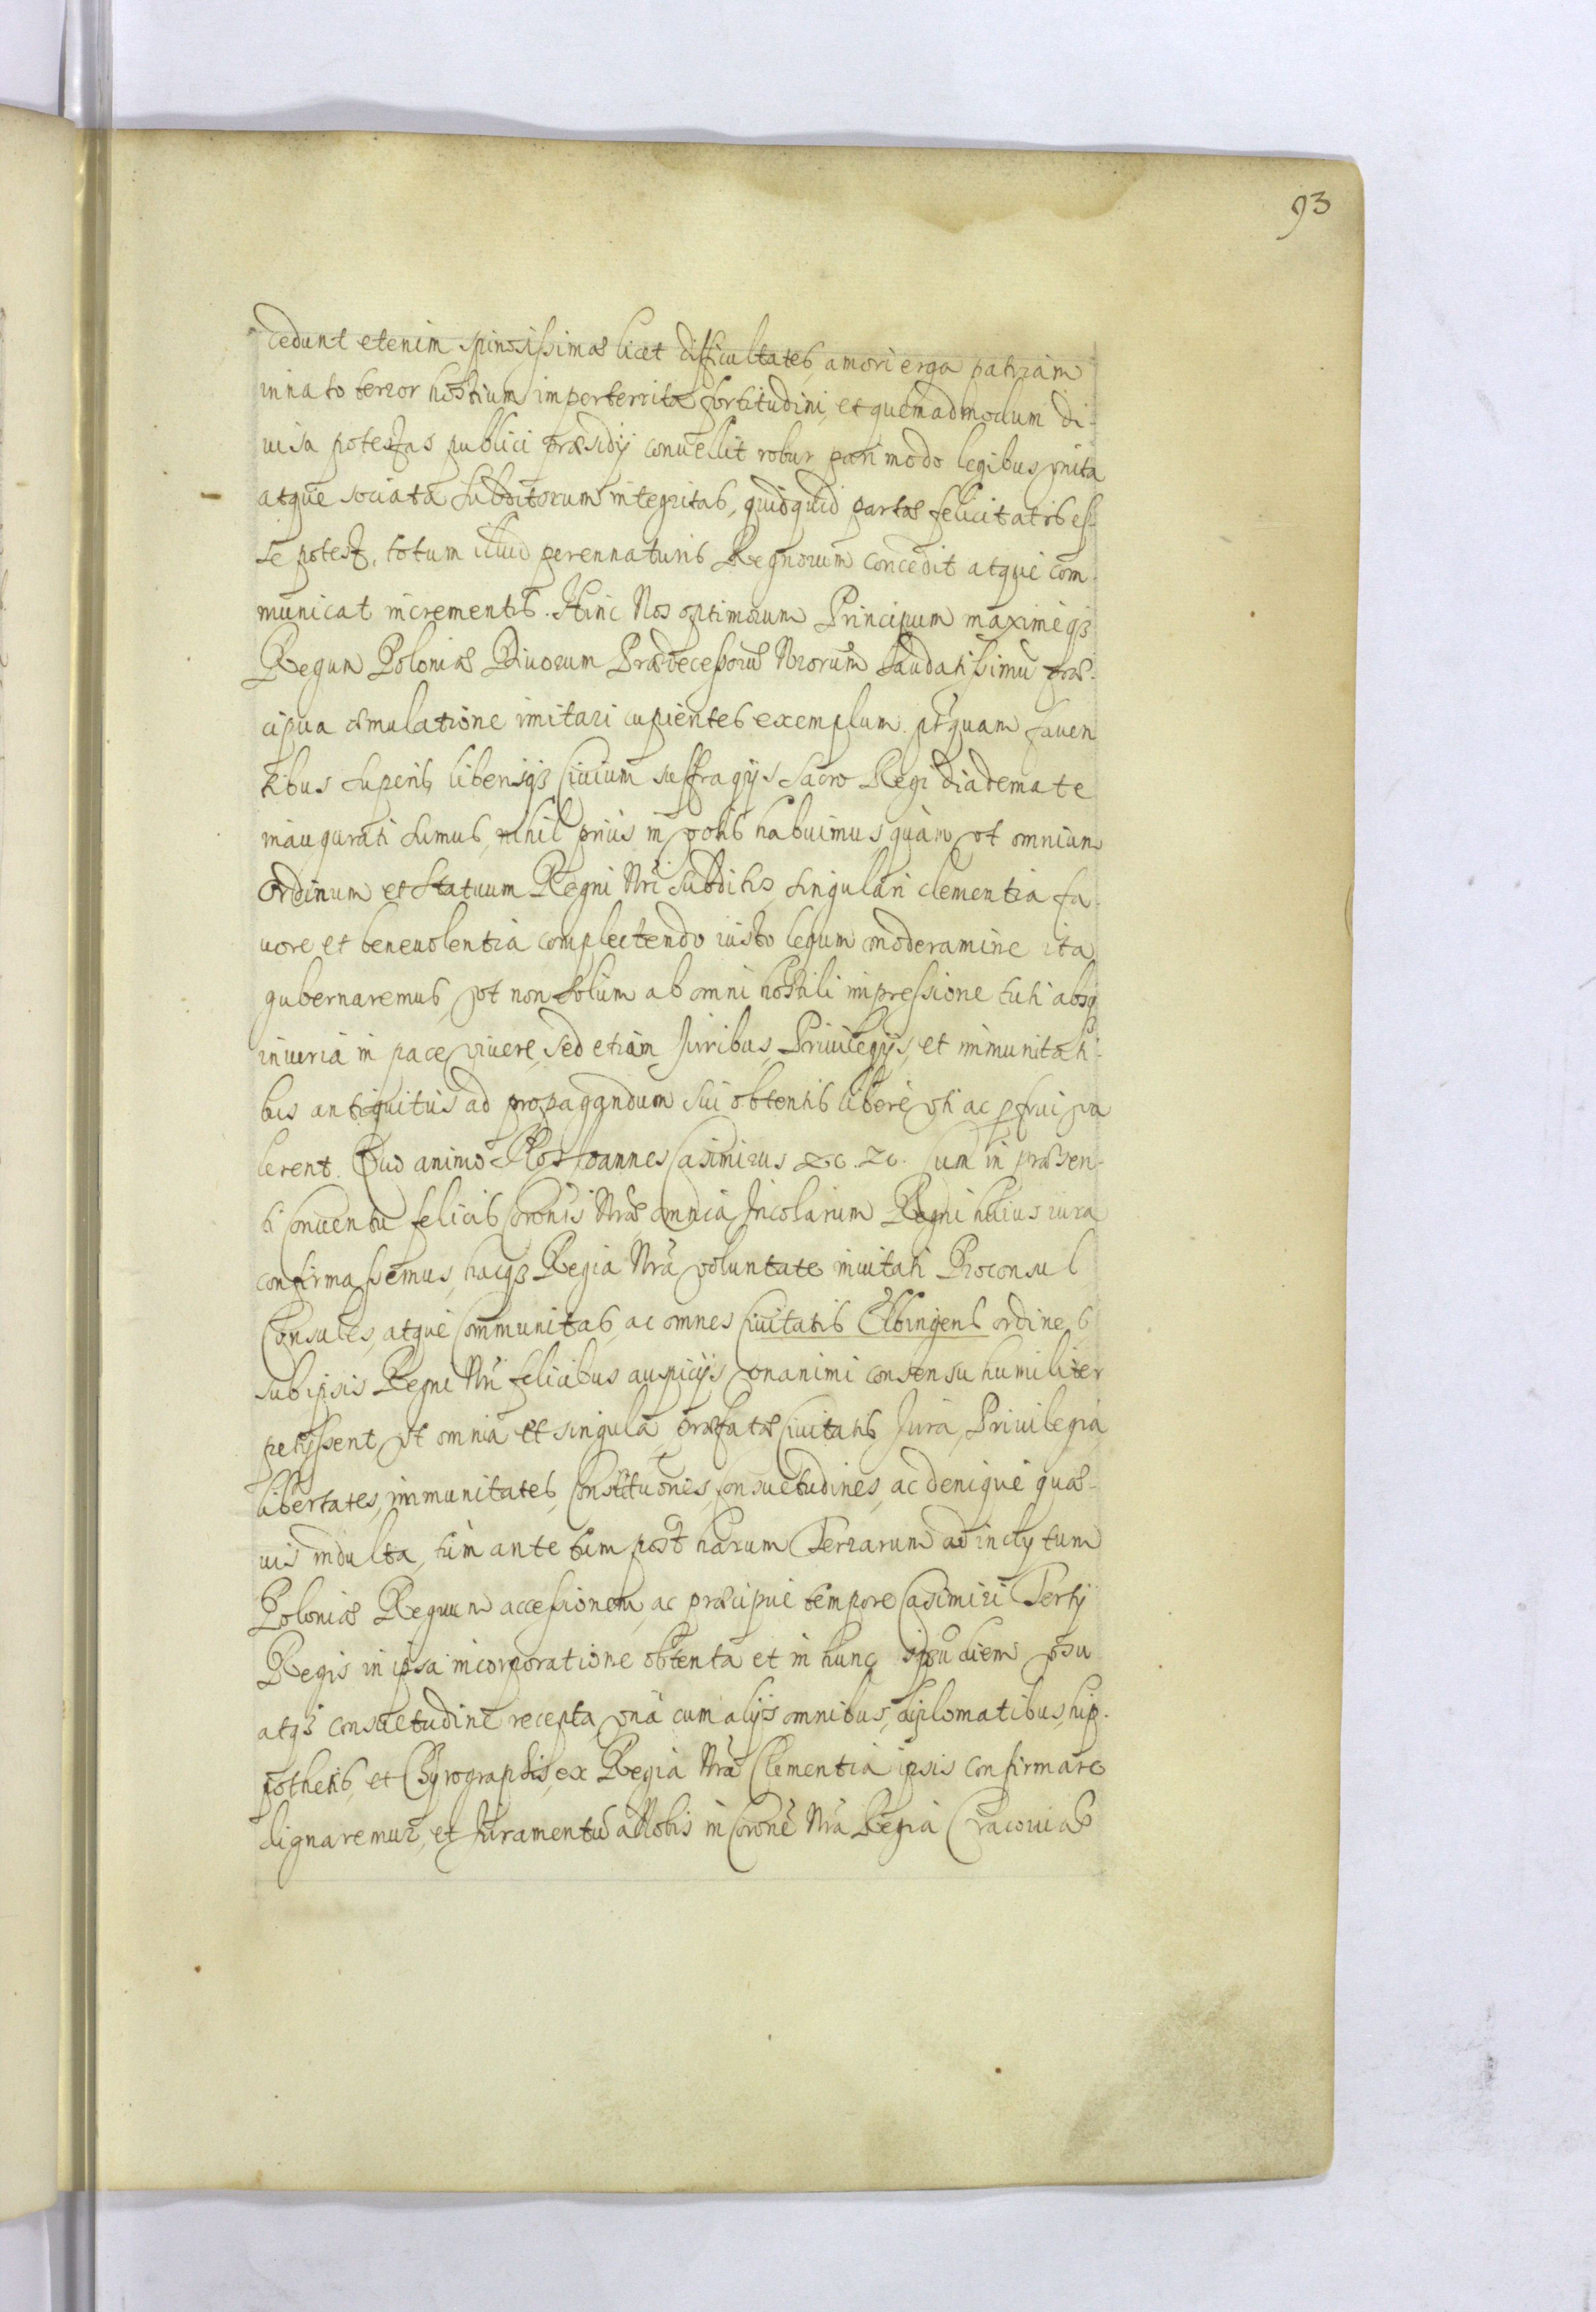 93
cedunt etenim spinosissimæ licet difficultates, amori erga patriam
innato terror hostium imperterritæ fortitudini, et quemadmodum di-
uisa potestas publici præsidij conuellit robur pari modo legibus vnita
atque sociata Subditorum integritas, quidquid partæ felicitatis es-
se potest, totum illud perennaturis Regnorum concedit atque com-
municat incrementis. Hinc Nos optimorum Principum maximeq3
Regum Poloniæ Diuorum Prædecessorũ Nrorum laudatissimũ præ-
cipua æmulatione imitari cupientes exemplum. ptquam fauen
tibus Superis, liberisq3 Ciuium suffragijs Sacro Regi diademate
inaugurati Sumus, nihil prius in votis habuimus quàm vt omnium
Ordinum et Statuum Regni Nri Subditos, Singulari clementia fa-
uore et beneuolentia complectendo iusto legum moderamine ita
gubernaremus, vt non Solùm ab omni hostili impressione tuti absq3
iniuria in pace viuere, Sed etiàm Juribus, Priuilegijs, et immunitati-
bus antiquitùs ad propagandum sui obtentis liberè vti ac pfrui va
lerent. Quo animo Nos Joannes Casimirus &c. &c. Cum in præsen-
ti Conuentu felicis Coronis Nræ, omnia Incolarum Regni huius iura
confirmassemus, hacq3 Regia Nrã voluntate inuitati Proconsul
Consules, atque Communitas, ac omnes Ciuitatis Elbingens ordines
sub ipsis Regni Nri felicibus auspicijs vnanimi consensu humiliter
petijssent, vt omnia et singula, præfatæ Ciuitatis Jura, Priuilegia,
libertates, immunitates, Constitutiones, Consuetudines, ac denique quæ-
uis indulta, tùm ante tum post harum Terrarum ad inclytum
Poloniæ Regnum accessionem, ac præcipuè tempore Casimiri Tertij
Regis in ipsa incorporatione obtenta et in hunc usqũ diem vsu
atq3 consuetudine recepta, vnà cum alijs omnibus, diplomatibus, hip-
pothetis, et Chyrographis, ex Regia Nrã Clementia ipsis confirmare
dignaremur, et Juramentũ a Nobis in Coronẽ Nrã Regia Cracouiæ